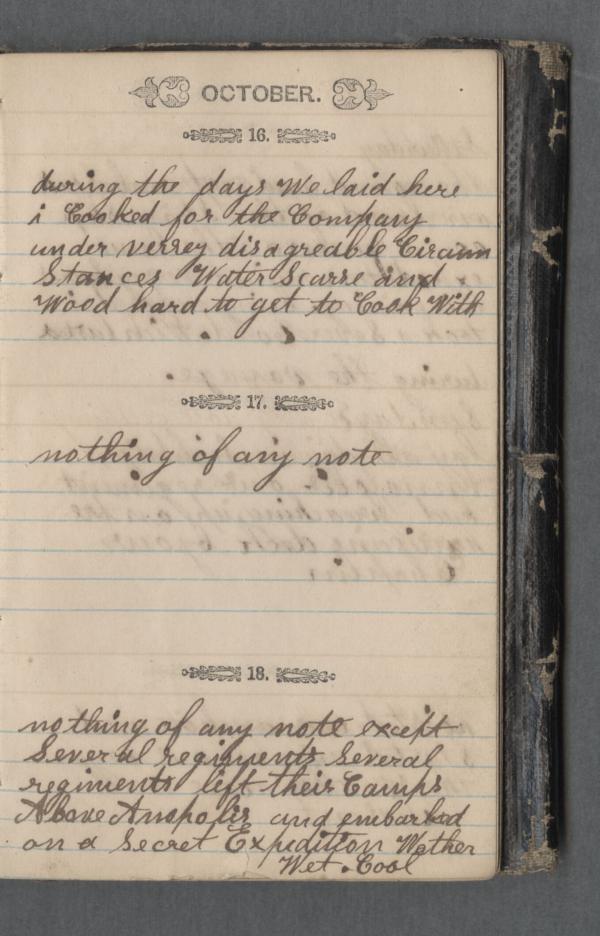 OCTOBER.
16.
during the days We laid here
i Cooked for the Company
under verrey disagreable Circum
Stances Water Scarse and
Wood hard to get to Cook With
17.
nothing of any note
18.
nothing of any note except
Several regiments Several
regiments left their Camps
Above Anapolis and embarked
on a Secret Expedition Wether
Wet. Cool